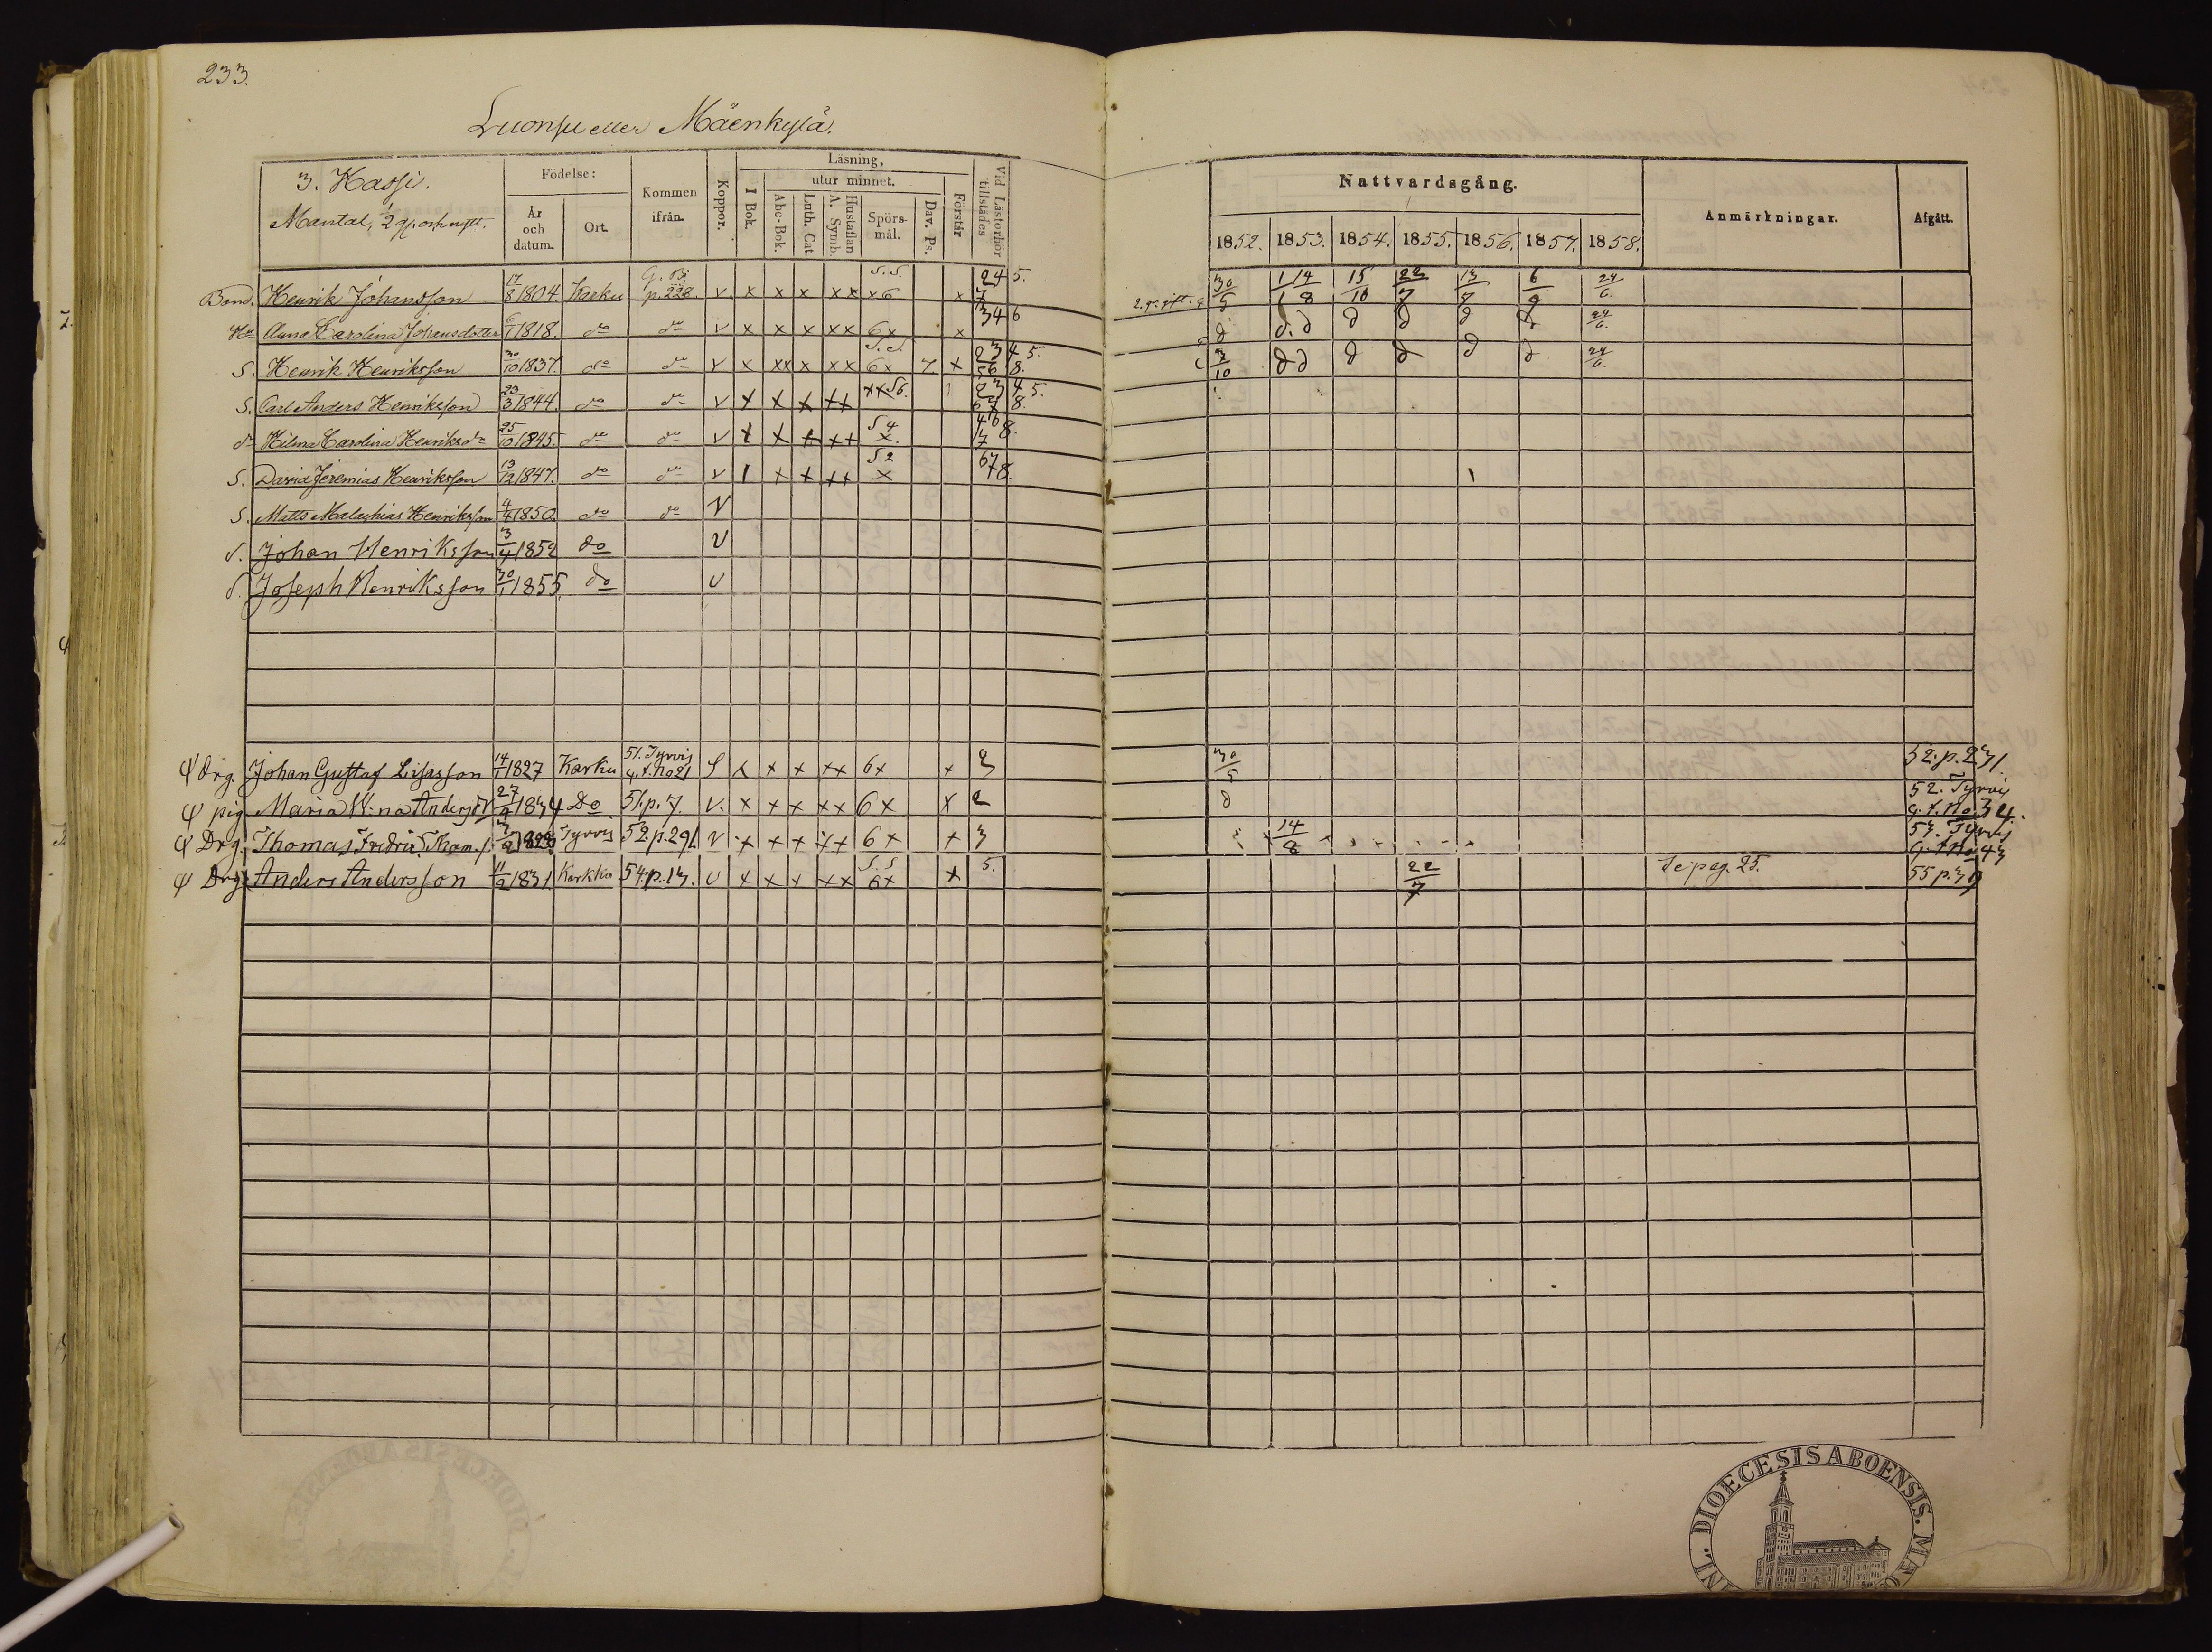 233.
Luonsu eller Mäenkylä.
3. Hassi.
Mantal, 2 gr och nytt.
Födelse:
År och datum.
Ort.
Kommen ifrån.
Koppor.
Läsning,
I Bok.
utur minnet.
Abc-Bok.
Luth. Cat.
Hustaflan A. Symb.
Spörsmål.
Dav. Ps.
Förstår
Vid Läsförhör tillstädes
Nattvardsgång.
1852. 1853. 1854. 1855. 1856. 1857. 1858.
Anmärkningar.
Afgått.
Bond. Henrik Johansson 17/8 1804. Karku G. B. p. 228. v. x x x xx x6 S.S. x 245. 7 2. gr. gift. 30/5 1/1 14/8 15/10 22/7 13/7 6/9 24/6.
Hu Anna Carolina Johansdotter 6/1 1818. do do v x x x xx 6x x 346 d d.d d d d d 24/6.
S. Henrik Henriksson 30/10 1837. do do v x xx x xx 6x S.S. 7 x 2345. 568. 3/10 d d d d d d 24/6.
S. Carl Anders Henriksson 23/3 1844. do do v x x x xx xx S6. 2345. 678.
dr Hilma Carolina Henriksdr 25/10 1845. do do v x x x xx S4 x. 468. 7
S. David Jeremias Henriksson 13/12 1847. do do v 1 x x xx S2 x 678.
S. Matts Malachias Henriksson 4/4 1850. do do v
S. Johan Henriksson 3/4 1852 do v
S. Joseph Henriksson 30/1 1855. do v
Drg. Johan Gustaf Lisasson 14/1 1827 Karku 51. Tyrvis g. t. No 21 S x x x xx 6x x 2 30/5 52. p. 231.
pig Maria W:na Andersdr 27/9 1834 Do 51. p. 7. v. x x x xx 6x x 2 d 52. Tyrvis g. t. No 34.
Drg. Thomas Fredric Thom. s. Tyrvis 52. p. 291 v x x x xx 6x x 3 14/8 53. Tyrvis g. t. No 43
Drg Anders Andersson 11/9 1831 Karkku 54. p. 13. v x x x xx S.S 6x x 5. 22/7 Se pag. 25. 55 p.
DIOECESIS ABOENSIS.